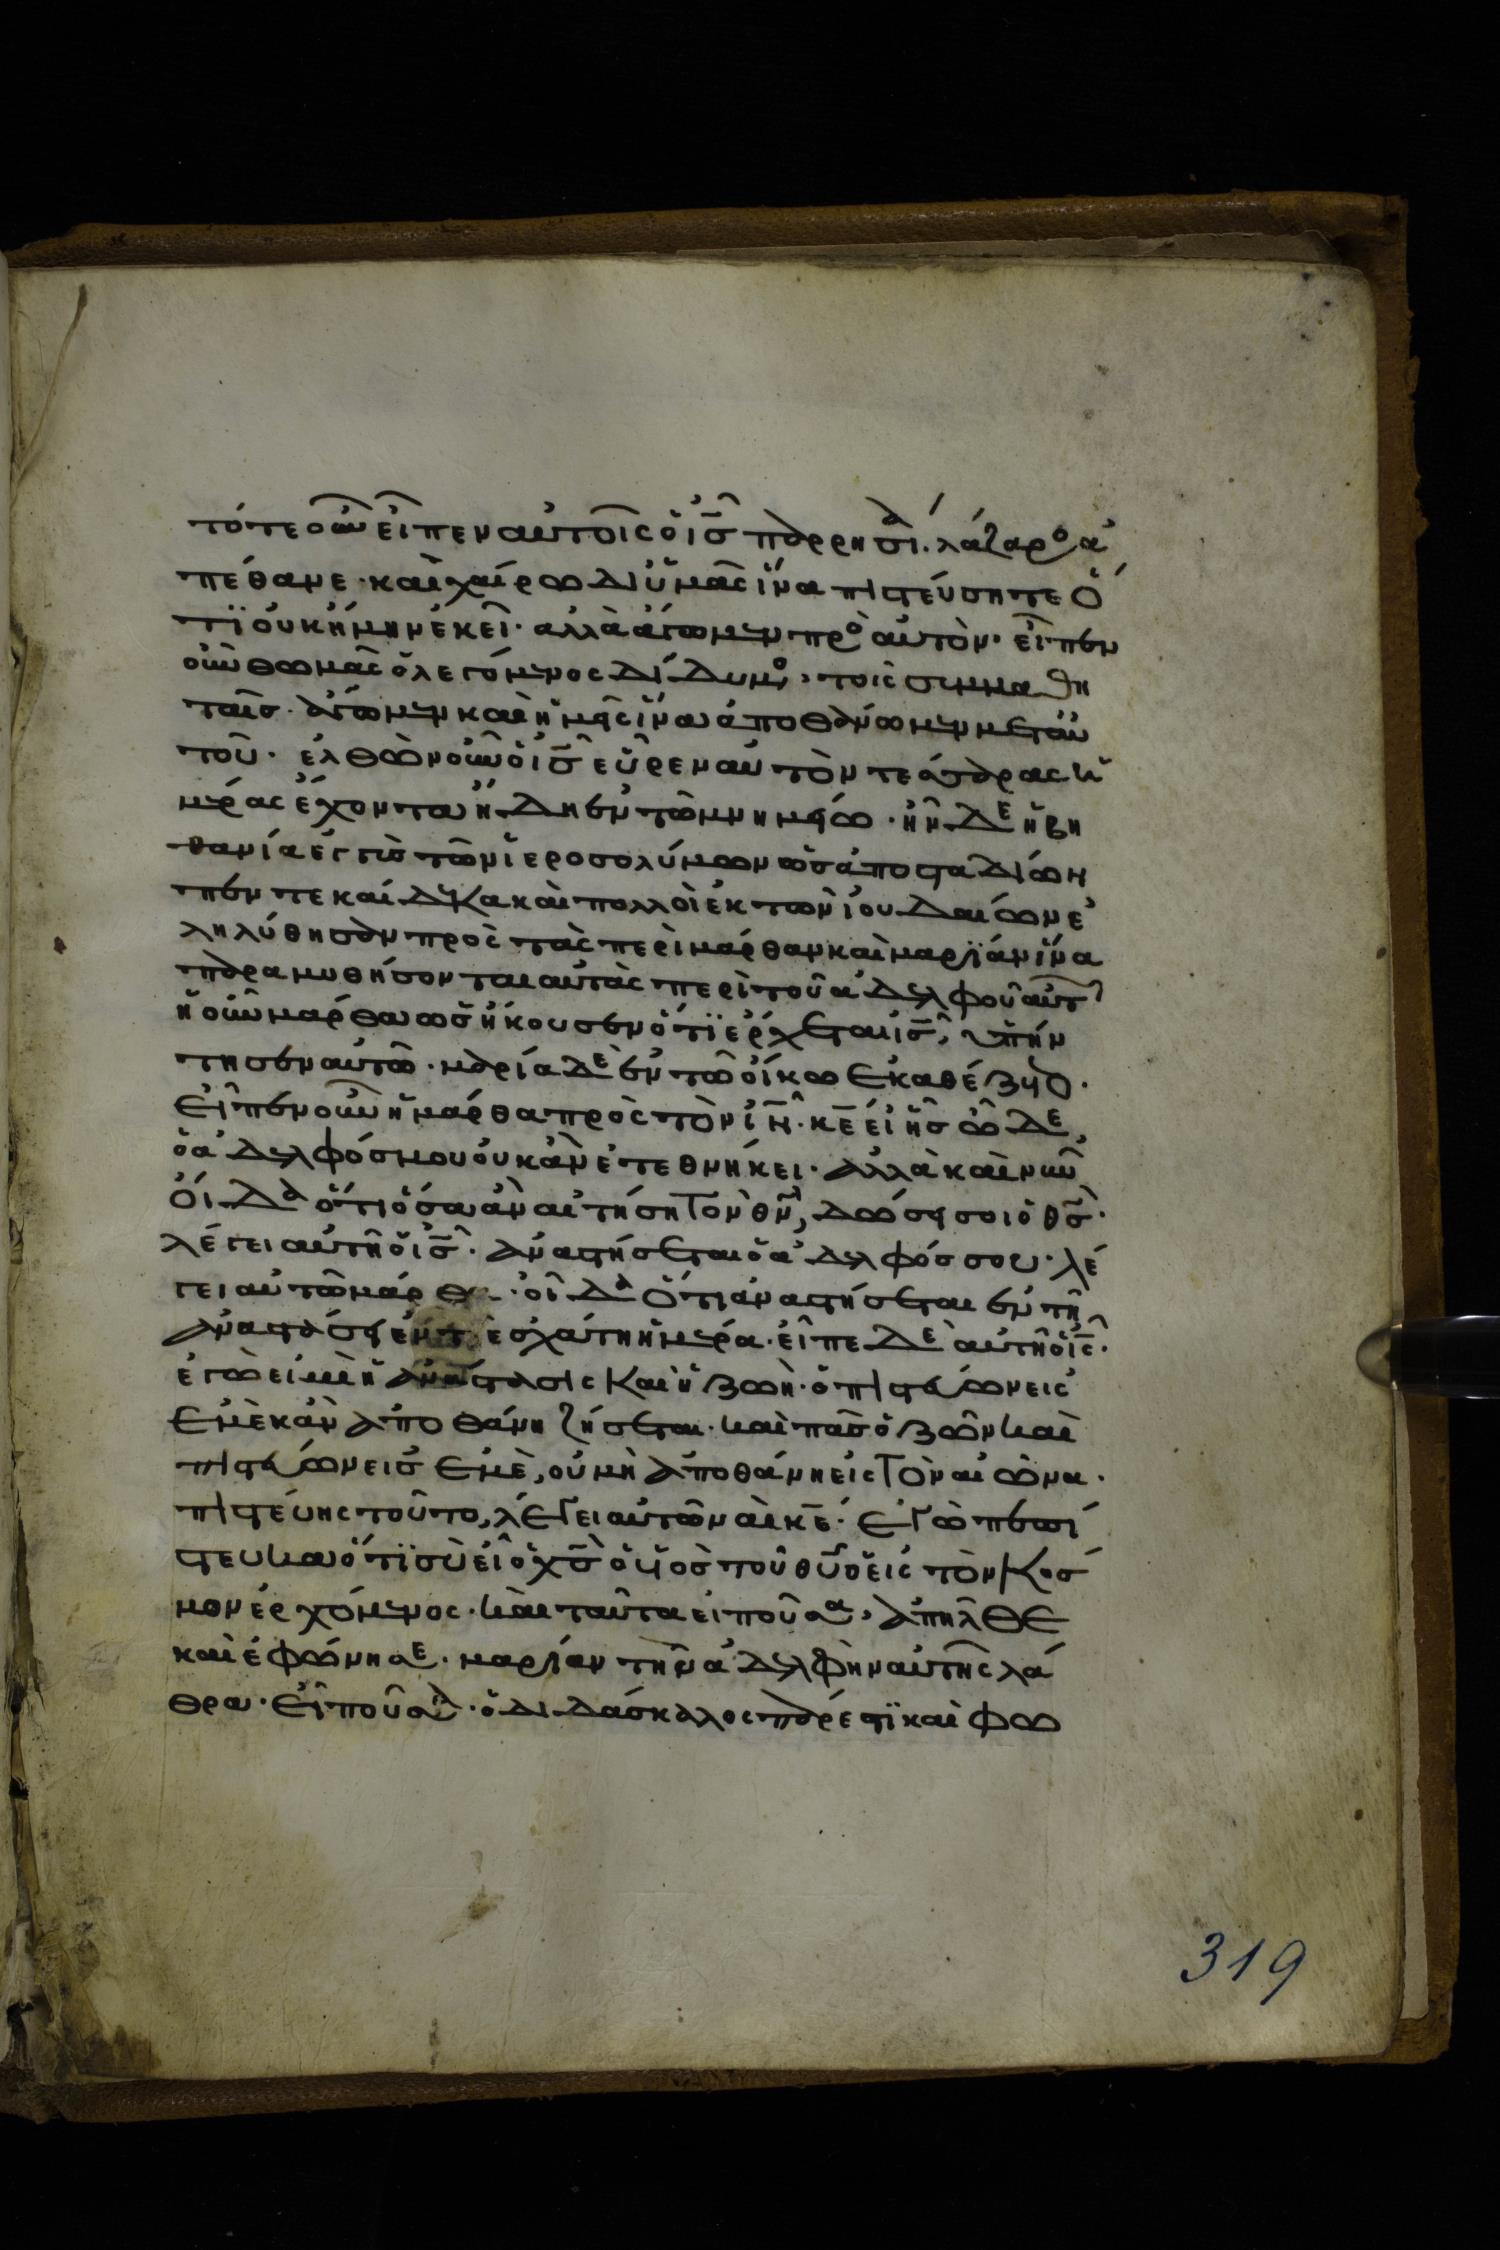 τότε οὖν εἶπεν αὐτοῖς ὁ ις παρρησία. λάζαρος ἀ
πέθανε· καὶ χαίρω δι ὑμᾶς ἵνα πιστεύσητε ὅ
τι οὐκ ἤμην ἐκεῖ· ἀλλὰ ἄγωμεν προς αὐτόν· εἶπεν
οὖν θωμᾶς ὁ λεγόμενος δίδυμος, τοῖς συμμαθη
ταῖς· ἄγωμεν καὶ ἡμεῖς ἵνα ἀποθάνωμεν μετ αὐ
τοῦ· ἐλθὼν οὖν ὁ ις εὗρεν αὐτὸν τέσσαρας ἡ
μέρας ἔχοντα ἤδη ἐν τῶ μνημείω· ἦν δε ἡ βη
θανία ἐγγὺς τῶν ἱεροσολύμων ὡς ἀπο σταδίων
πέντε καὶ δέκα καὶ πολλοὶ ἐκ τῶν ἰουδαίων ἐ
ληλύθησαν πρὸς τὰς περὶ μάρθαν καὶ μαρίαν ἵνα
παραμυθήσονται αὐτὰς περὶ τοῦ ἀδελφοῦ αὐτ
ἡ οὖν μάρθα ὡς ἤκουσεν ὅτι ἔρχεται ις, ὑπήν
τησεν αὐτῶ· μαρία δε ἐν τῶ οἴκω ἐκαθέζετο·
εἶπεν οὖν ἡ μάρθα πρὸς τὸν ιν· κε εἰ ἦς ὧδε,
ὁ ἀδελφός μου οὐκ ἂν ἐτεθνήκει· ἀλλὰ καὶ νῦν
οἶδα ὅτι ὅσα ἂν αἰτήση τὸν θν, δώσει σοι ὁ θς·
λέγει αὐτῆ ὁ ις· ἀναστήσεται ὁ ἀδελφός σου· λέ
γει αὐτῶ μάρθα· οἶδα ὅτι ἀναστήσεται ἐν τῆ
ἀναστάσει ἐν τ ἐσχάτη ἡμέρα· εἶπε δε αὐτῆ ὁ ις·
ἐγώ εἰμι ἡ ἀνάστασις καὶ ἡ ζωὴ· ὁ πιστεύων εἰς
ἐμὲ κἂν ἀποθάνη ζήσεται· καὶ πᾶς ὁ ζῶν καὶ
πιστεύων εἰς ἐμὲ, οὐ μὴ ἀποθάνη εἰς τὸν αἰῶνα·
πιστεύης τοῦτο, λέγει αὐτῶ ναὶ κε· ἐγὼ πεπί
στευκα ὅτι σὺ εἶ ὁ χς ὁ υἱὸς τοῦ θυ ὁ εἰς τὸν κόσ
μον ἐρχόμενος· καὶ ταῦτα εἰποῦσα, ἀπῆλθε
καὶ ἐφώνησε· μαρίαν τὴν ἀδελφὴν αὐτῆς λά
θρα· εἰποῦσα· ὁ διδάσκαλος πάρεστι καὶ φω
319